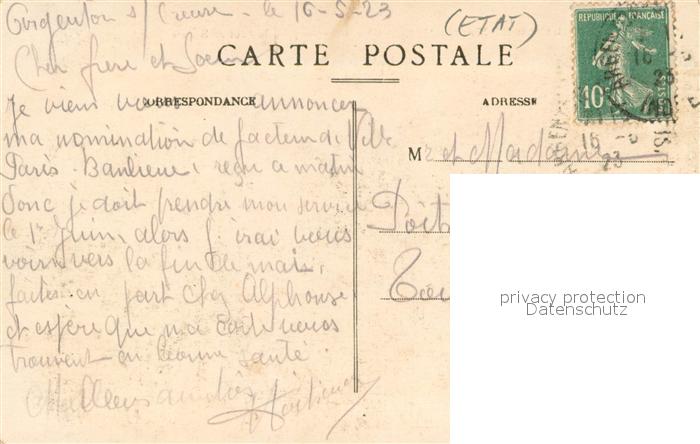 Argenton s/ Creuse. le 16-5-23
(ETAT)
CARTE POSTALE
REPUBLIQUE FRANÇAISE
10
POSTES
Cher frere et Soeur
CORRESPONDANCE
ADRESSE
Je viens vous annoncer
ma nomination de facteur de Ville
Paris-Banlieue, reçu ce matin
donc je doit prendre mon service
le 1er Juin, alors j'irai vous
voir vers la fin de mai,
faites-en part chez Alphonse
et espère que ma carte vous
trouvent en bonne santé.
Meilleurs amitiés
Mr et Madame
16 -5
23
privacy protection
Datenschutz